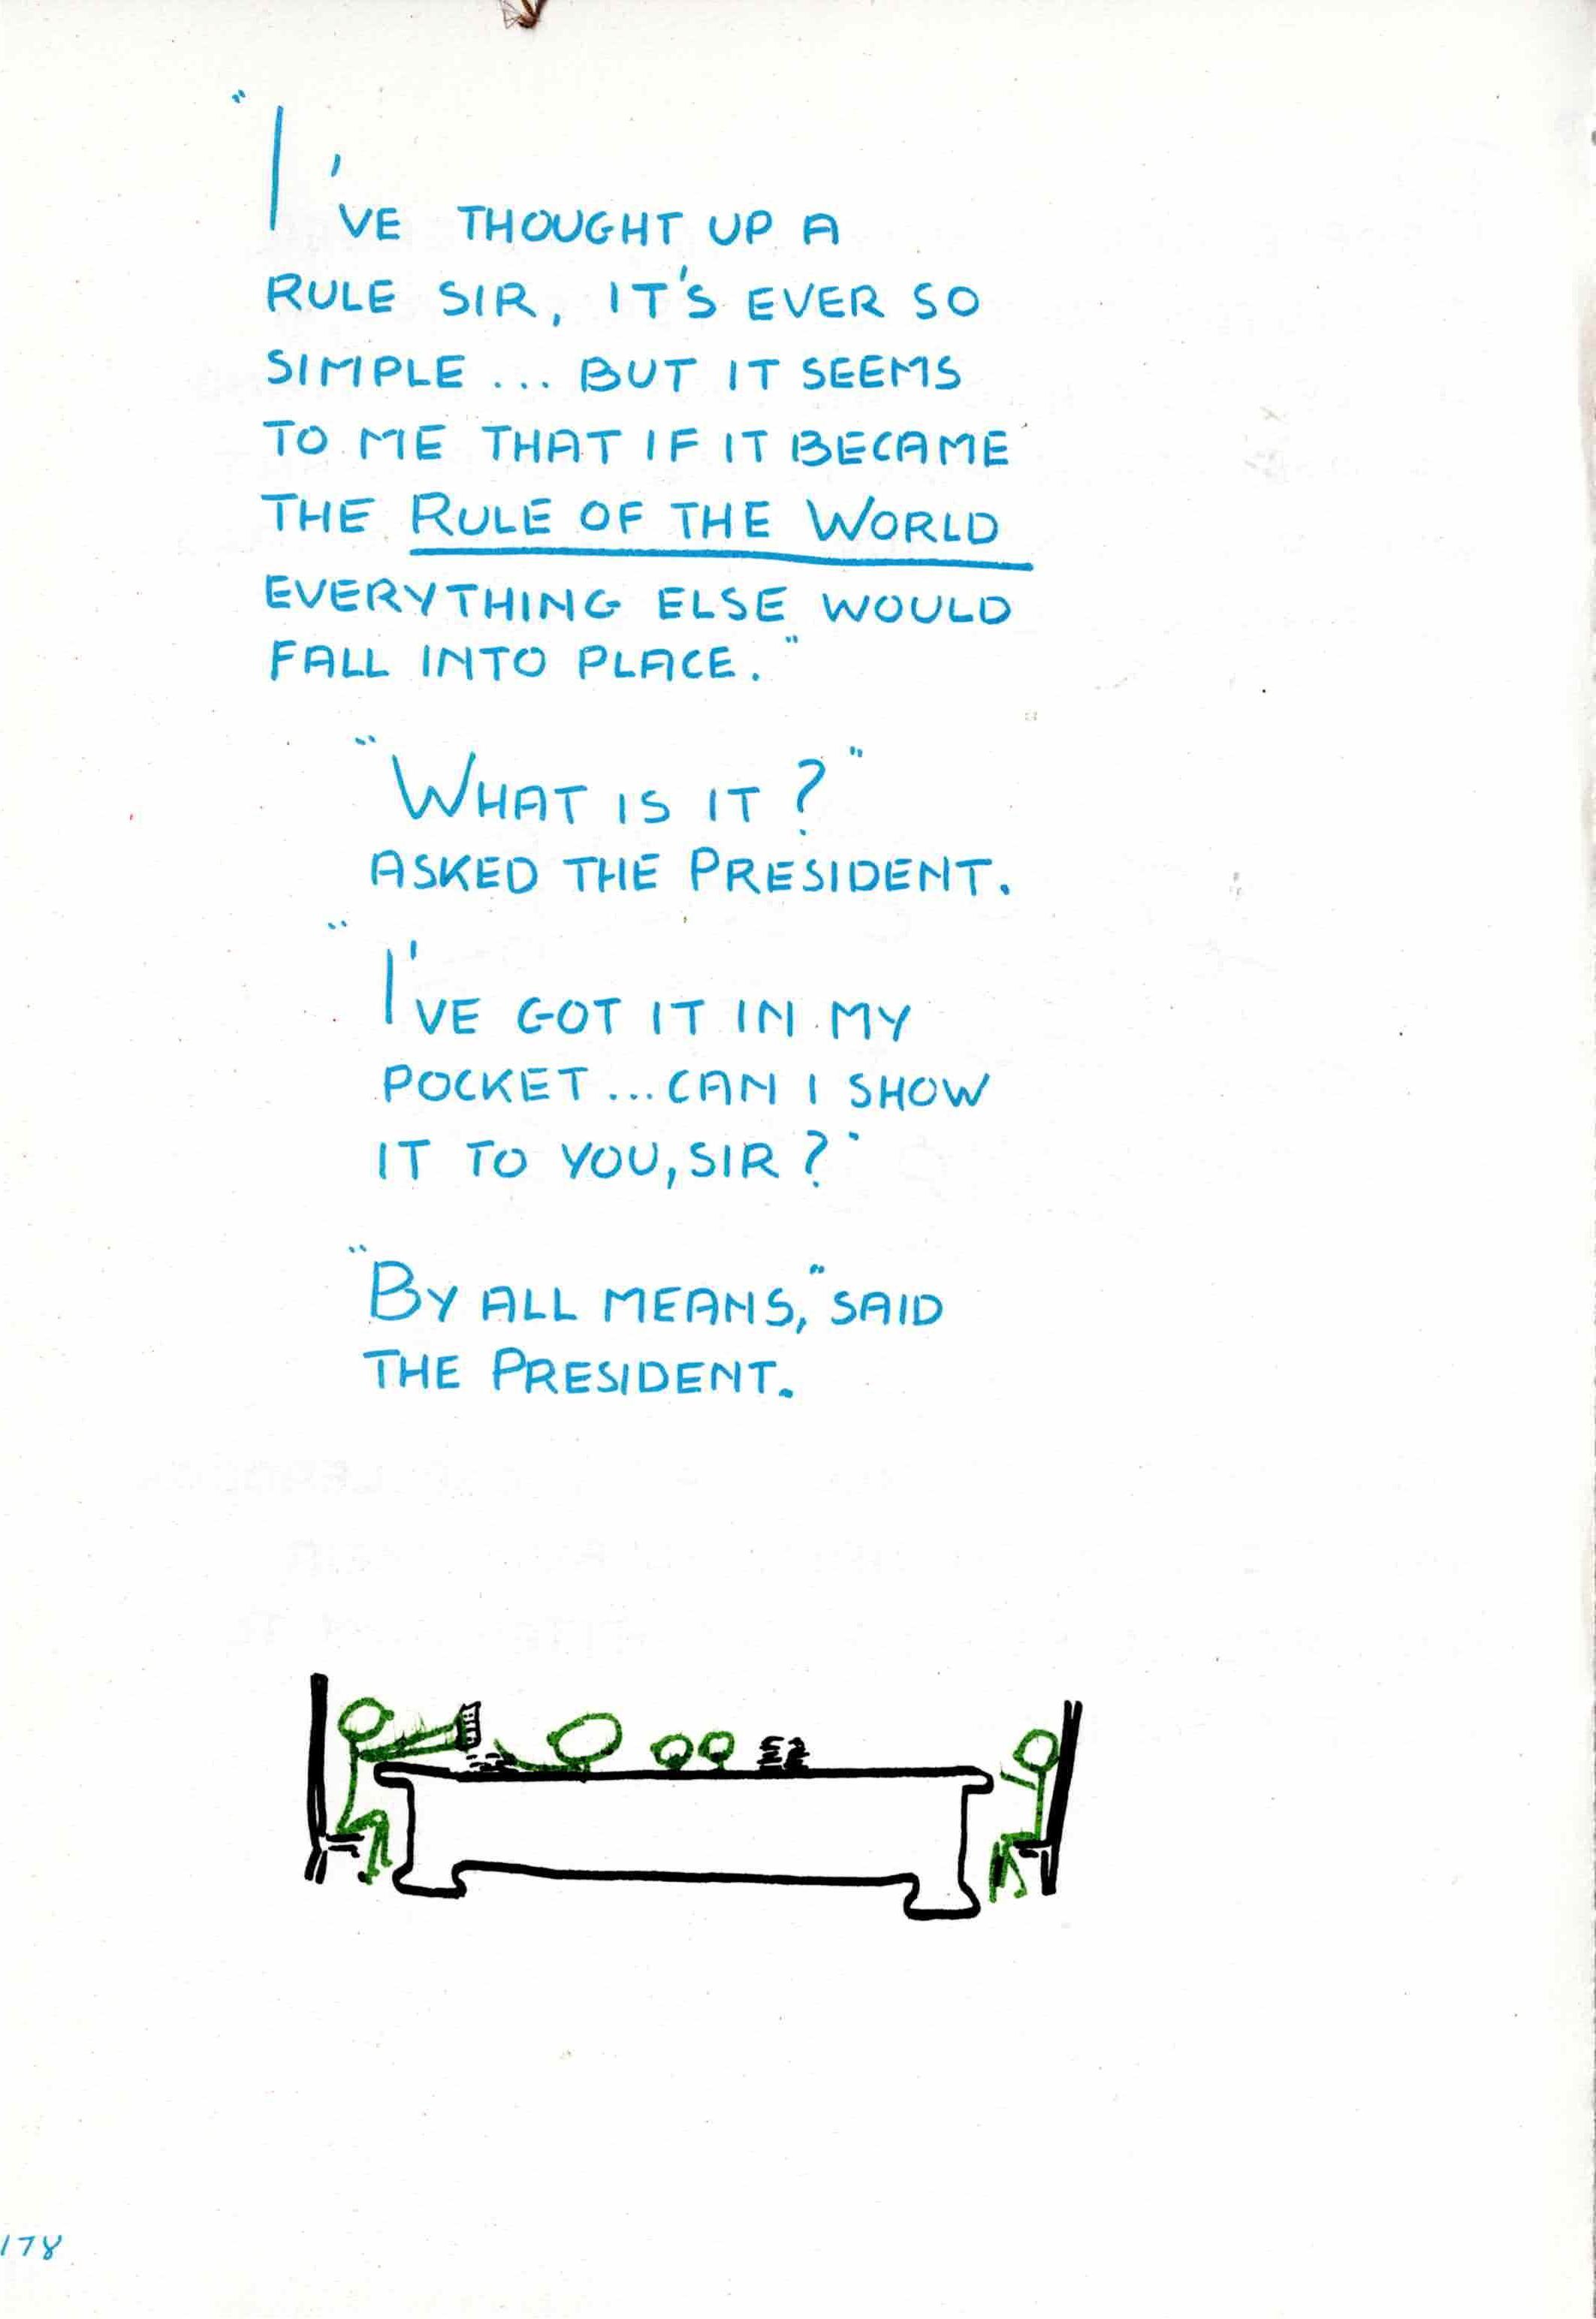 "I'VE THOUGHT UP A
RULE SIR, IT'S EVER SO
SIMPLE ... BUT IT SEEMS
TO ME THAT IF IT BECAME
THE RULE OF THE WORLD
EVERYTHING ELSE WOULD
FALL INTO PLACE."
"WHAT IS IT?"
ASKED THE PRESIDENT.
"I'VE GOT IT IN MY
POCKET ... CAN I SHOW
IT TO YOU, SIR?"
"BY ALL MEANS," SAID
THE PRESIDENT.
178